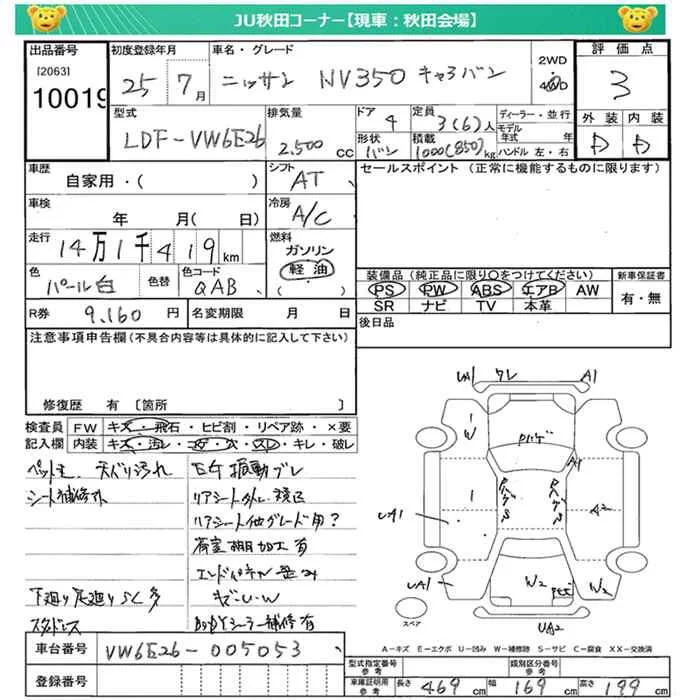 JU秋田コーナー【現車：秋田会場】
出品番号
[2063]
10019
初度登録年月
25 7月
車名・グレード
ニッサン NV350 キャラバン
2WD
4WD
評価点
3
外装 内装
D D
型式
LDF-VW6E26
排気量
2,500 cc
ドア
4
形状
バン
定員
3(6)人
積載
1000(850)kg
ディーラー・並行
モデル年式 年
ハンドル 左・右
車歴
自家用・( )
シフト
AT
セールスポイント（正常に機能するものに限ります）
車検
年 月(日)
冷房
A/C
走行
14万1千419km
燃料
ガソリン
軽油
( )
色
パール白
色替
色コード
QAB
装備品（純正品に限り○をつけてください）
PS PW ABS エアB AW
SR ナビ TV 本革
新車保証書
有・無
R券 9,160円
名変期限 月 日
後日品
注意事項申告欄（不具合内容等は具体的に記入して下さい）
修復歴 有 〔箇所 〕
検査員 FW キズ・飛石・ヒビ割・リペア跡・×要
記入欄 内装 キズ・汚レ・コゲ・穴・スレ・キレ・破レ
天バリ汚れ
シート補修
E/G振動ブレ
リアシート
リアシート他グレード用？
荷室棚加工有
キズ・U・W
下廻り足廻りサビ多
スタッドレス
シーラー補修有
UA1 ワレ A1
W
A1
UA1
A2
UA1
W2
W2
UA2
スペア
A－キズ E－エクボ U－凹み W－補修跡 S－サビ C－腐食 XX－交換済
車台番号 VW6E26-005053
登録番号
型式指定番号 参考
類別区分番号 参考
車庫証明用 参考
長さ 469 cm 幅 169 cm 高さ 199 cm